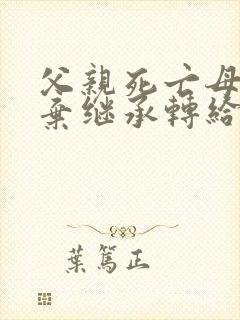 父親死亡母
棄继承轉給
葉篤正